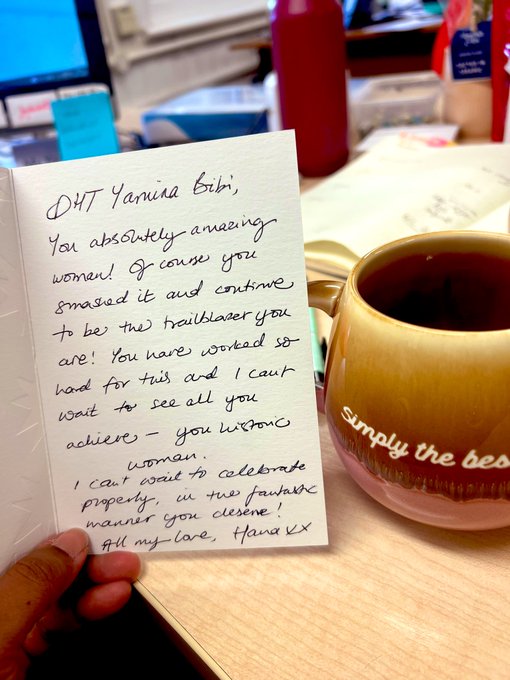 DHT Yamina Bibi,
You absolutely amazing
woman! Of course you
smashed it and continue
to be the trailblazer you
are! You have worked so
hard for this and I can't
wait to see all you
achieve – you historic
woman.
I can't wait to celebrate
properly, in the fantastic
manner you deserve!
All my love, Hana xx
Simply the bes